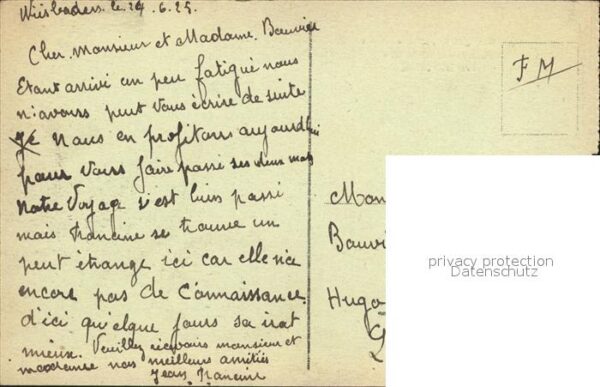 Wiesbaden. le 24.6.25.
Cher Monsieur et Madame. Bauvier
Etant arrivé un peu fatigué nous
n'avons peut vous écrire de suite
Je Nous en profitons aujourd'hui
pour vous faire passé ses deux mots
Notre Voyage s'est bien passé
mais Francine se trouve un
peut étrange ici car elle n'a
encore pas de Connaissance.
d'ici quelque jours sa irat
mieux. Veuillez recevoirs monsieur et
madame nos meilleurs amitiés
Jean Francine
FM
Mon
Bauvi
Hugo
privacy protection
Datenschutz